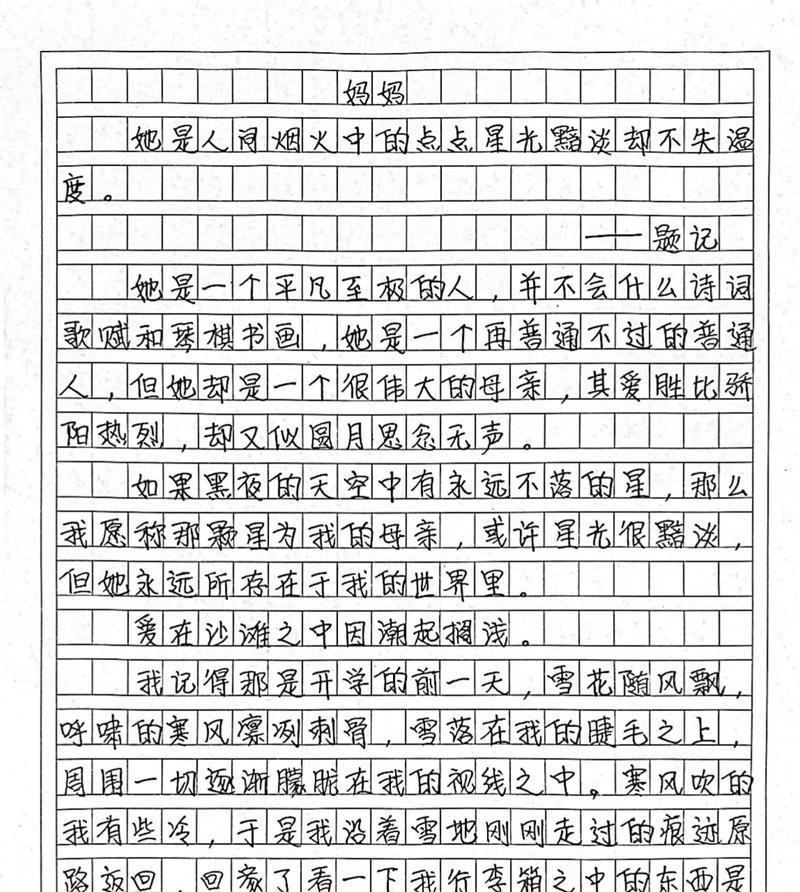 妈妈
她是人间烟火中的点点星光黯淡却不失温
度。
——题记
她是一个平凡至极的人，并不会什么诗词
歌赋和琴棋书画，她是一个再普通不过的普通
人，但她却是一个很伟大的母亲，其爱胜比骄
阳热烈，却又似圆月思念无声。
如果黑夜的天空中有永远不落的星，那么
我愿称那颗星为我的母亲，或许星光很黯淡，
但她永远所存在于我的世界里。
爱在沙滩之中因潮起搁浅。
我记得那是开学的前一天，雪花随风飘，
呼啸的寒风凛冽刺骨，雪落在我的睫毛之上，
周围一切逐渐朦胧在我的视线之中。寒风吹的
我有些冷，于是我沿着雪地刚刚走过的痕迹原
路返回，回家了看一下我行李箱之中的东西是